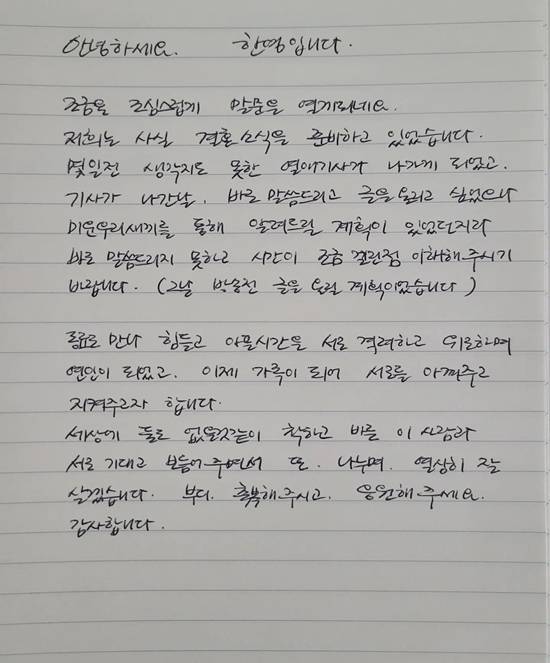 안녕하세요. 한영입니다.
조금은 조심스럽게 말문을 열게되네요.
저희는 사실 결혼소식을 준비하고 있었습니다.
몇일전 생각지도 못한 열애기사가 나가게 되었고.
기사가 나간날. 바로 말씀드리고 글을 올리고 싶었으나
미운우리새끼를 통해 알려드릴 계획이 있었던지라
바로 말씀드리지 못하고 시간이 조금 걸린점 이해해주시기
바랍니다. (그날 방송전 글을 올릴 계획이었습니다)
동료로 만나 힘들고 아플시간을 서로 격려하고 위로하며
연인이 되었고. 이제 가족이 되어 서로를 아껴주고
지켜주고자 합니다.
세상에 둘도 없을것같이 착하고 바를 이 사람과
서로 기대고 보듬어주며서 또. 나누며. 열심히 잘
살겠습니다. 부디. 축복해주시고. 응원해주세요.
감사합니다.